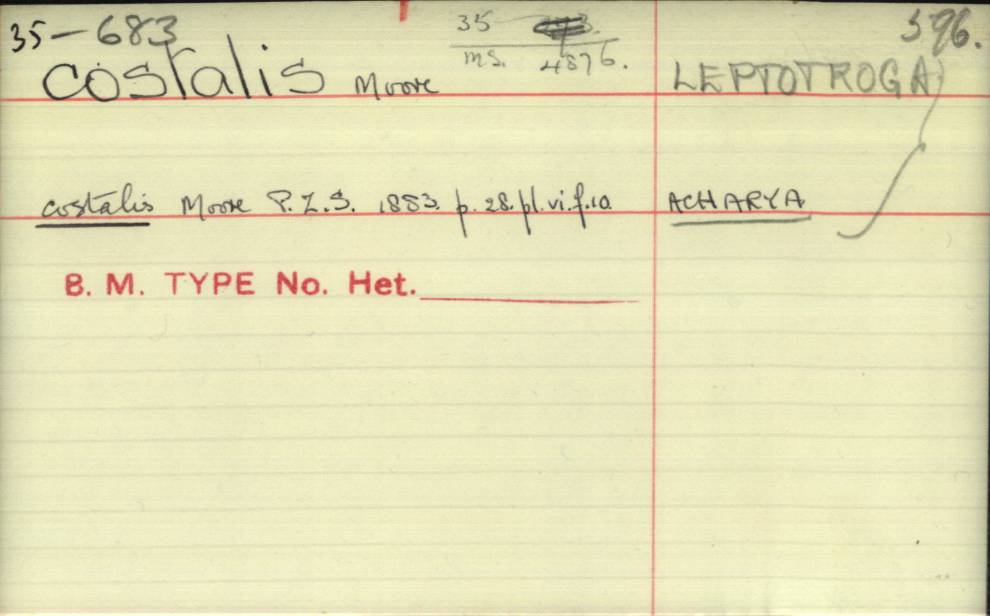 35-683 35 396.
ms. 4876.
costalis Moore LEPTOTROGA
costalis Moore P.Z.S. 1883. p. 28. pl. vi. f. 10 ACHARYA
B. M. TYPE No. Het.